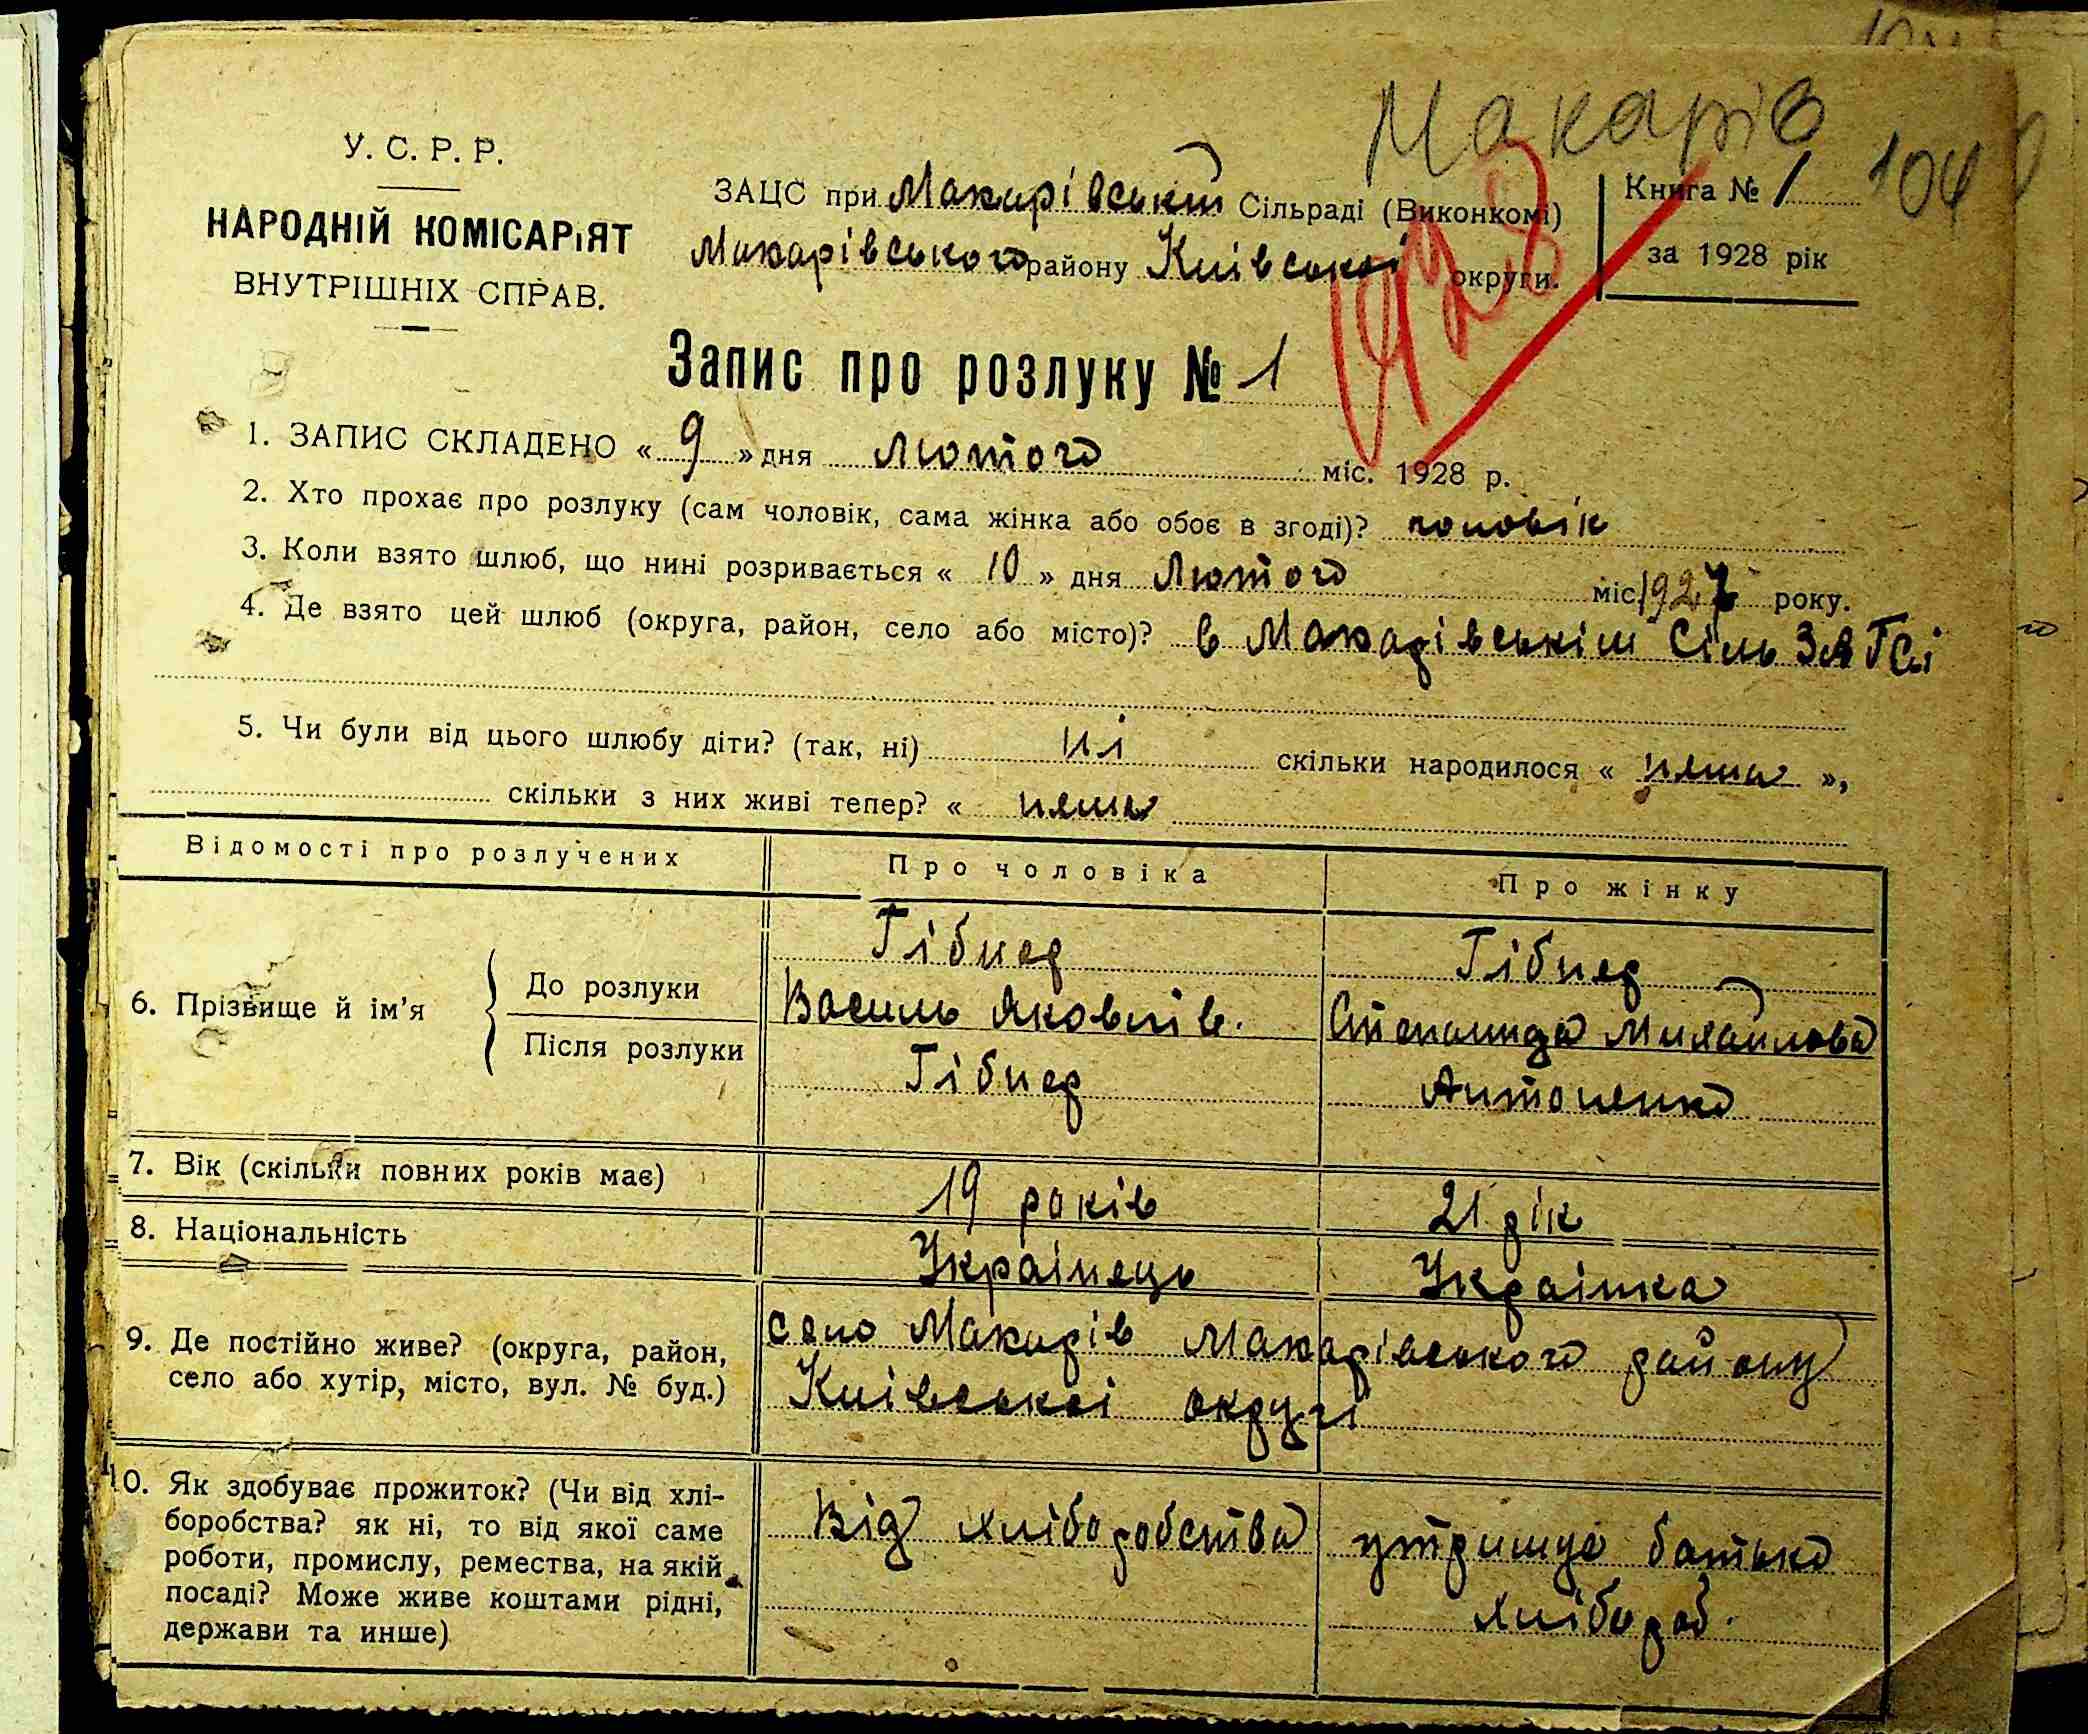 Макарів
104
У. С. Р. Р.
НАРОДНІЙ КОМІСАРіЯТ
ВНУТРІШНІХ СПРАВ.
ЗАЦС при Макарівській Сільраді (Виконкомі)
Макарівського району Київської округи.
Книга № 1
за 1928 рік
1928
Запис про розлуку № 1
1. ЗАПИС СКЛАДЕНО « 9 » дня лютого міс. 1928 р.
2. Хто прохає про розлуку (сам чоловік, сама жінка або обоє в згоді)? чоловік
3. Коли взято шлюб, що нині розривається « 10 » дня Лютого міс. 1927 року.
4. Де взято цей шлюб (округа, район, село або місто)? в Макарівськім Сіль ЗАГСі
5. Чи були від цього шлюбу діти? (так, ні) ні скільки народилося « нема »,
скільки з них живі тепер? « нема
Відомості про розлучених Про чоловіка Про жінку
6. Прізвище й ім'я
До розлуки
Гібнер Гібнер
Василь Яковлів. Степанида Михайлова
Після розлуки
Гібнер Антоненко
7. Вік (скільки повних років має) 19 років 21 рік
8. Національність Українець Українка
9. Де постійно живе? (округа, район,
село або хутір, місто, вул. № буд.)
село Макарів Макарівського району
Київської округи
10. Як здобуває прожиток? (Чи від хлі-
боробства? як ні, то від якої саме
роботи, промислу, ремества, на якій
посаді? Може живе коштами рідні,
держави та инше)
Від хліборобства
утримує батько
хлібороб.